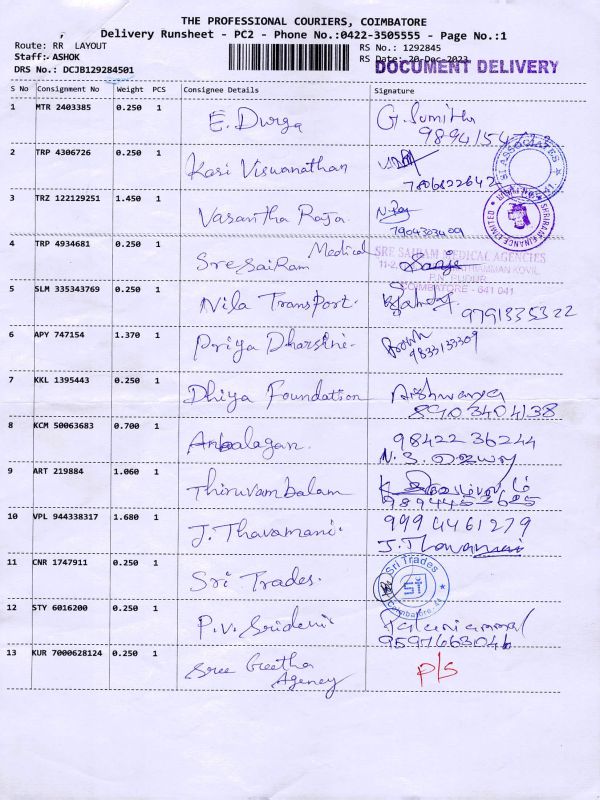 THE PROFESSIONAL COURIERS, COIMBATORE
Delivery Runsheet - PC2 - Phone No.:0422-3505555 - Page No.:1
Route: RR LAYOUT
RS No.: 1292845
Staff: ASHOK
RS Date: 20-Dec-2023
DOCUMENT DELIVERY
DRS No.: DCJB129284501
S No Consignment No Weight PCS Consignee Details Signature
1 MTR 2403385 0.250 1 E. Durga G. Sumitha
2 TRP 4306726 0.250 1 Kasi Viswanathan
7806822642
3 TRZ 122129251 1.450 1 Vasantha Raja
SHRIRAM FINANCE LIMITED
4 TRP 4934681 0.250 1 Sre SaiRam Medical
SRE SAIRAM MEDICAL AGENCIES
COIMBATORE - 641 041
5 SLM 335343769 0.250 1 Nila Transport.
9791335322
6 APY 747154 1.370 1 Priya Dharsini.
7 KKL 1395443 0.250 1 Dhiya Foundation Aishwarya
8903404138
8 KCM 50063683 0.700 1 Anbalagan. 9842236244
9 ART 219884 1.060 1 Thiruvambalam
10 VPL 944338317 1.680 1 J. Thavamani. 9994461279
J. Thavamani
11 CNR 1747911 0.250 1 Sri Trades.
Sri Trades
ST
Coimbatore-44
12 STY 6016200 0.250 1 P.V. Sridevi
13 KUR 7000628124 0.250 1 Sree Geetha P/S
Agency